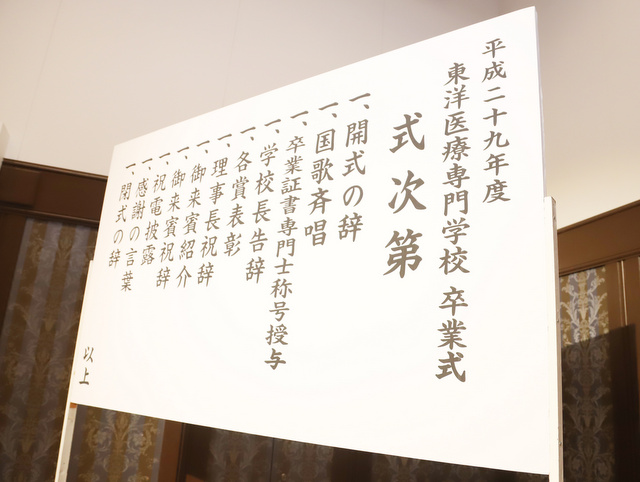 平成二十九年度
東洋医療専門学校 卒業式
式次第
一、開式の辞
一、国歌斉唱
一、卒業証書専門士称号授与
一、学校長告辞
一、各賞表彰
一、理事長祝辞
一、御来賓紹介
一、御来賓祝辞
一、祝電披露
一、感謝の言葉
一、閉式の辞
以上